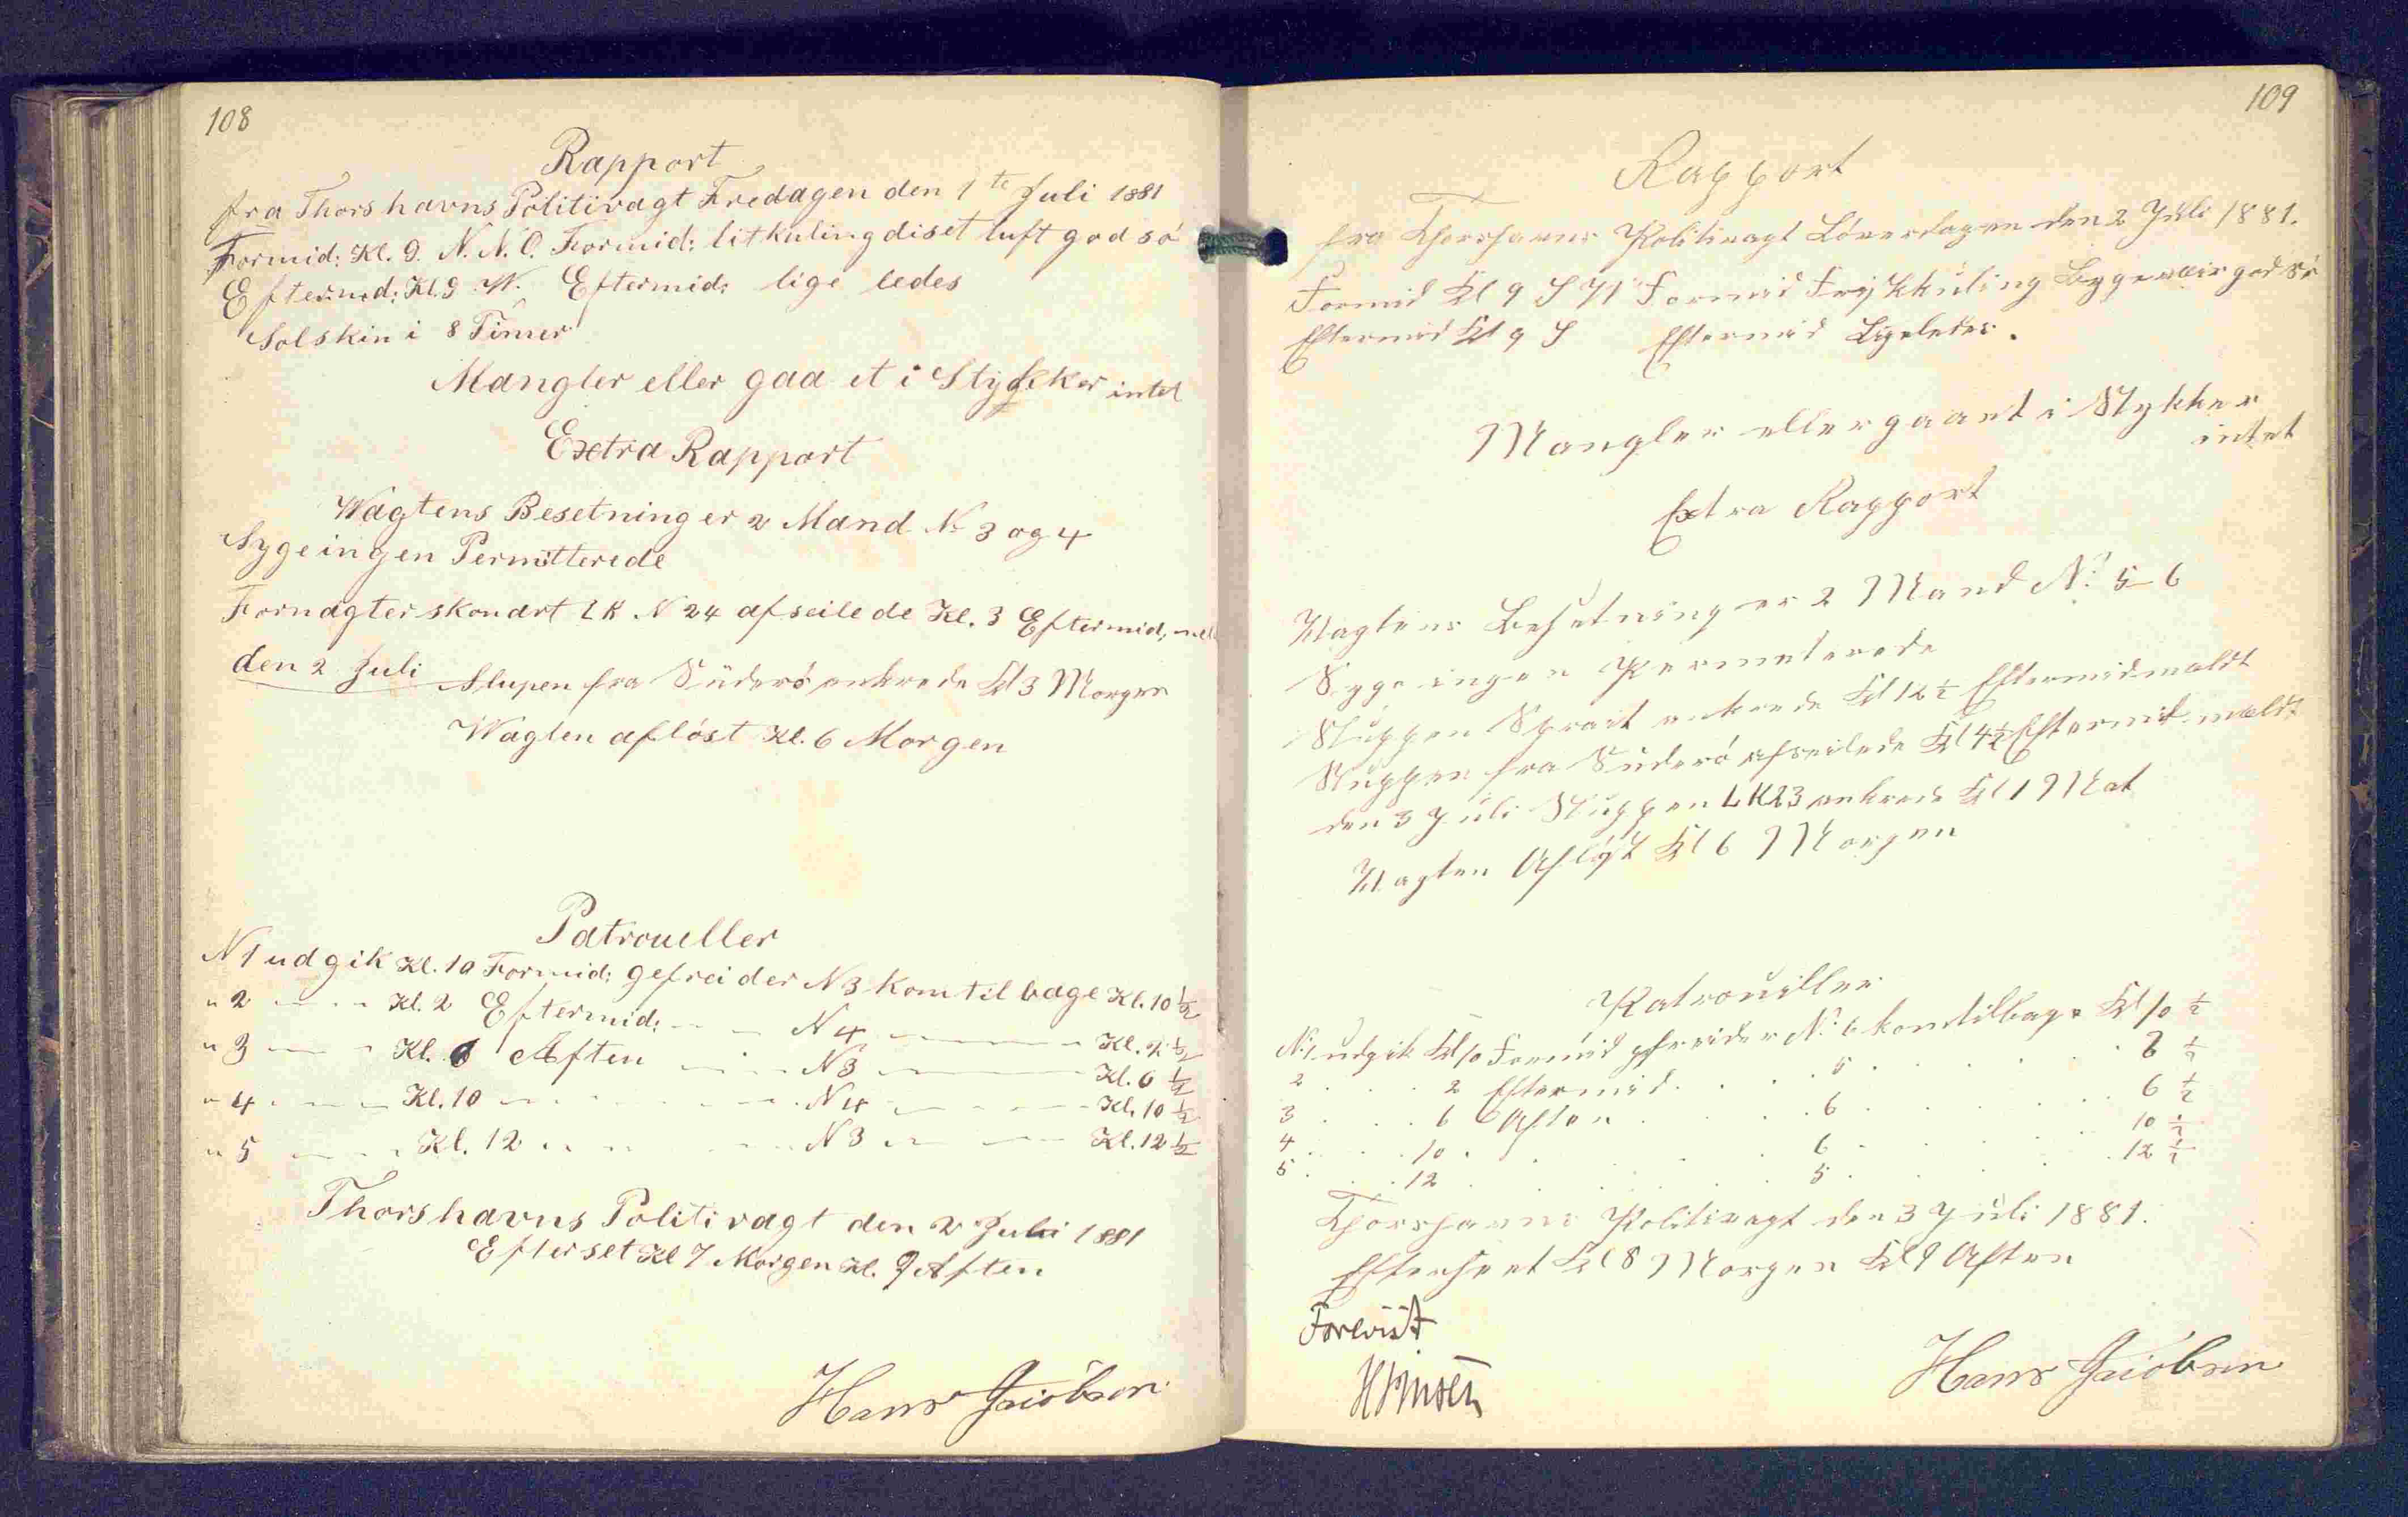 108
Rapport
fra Thorshavns Politivagt Fredagen den 1te Juli 1881
Formid: Kl. 9. N. N. O. Formid: litkuling diset luft god sö
Eftermid: Kl. 9 N. Eftermid: lige ledes
Solskin i 8 Timer
Mangler eller gaa et i Stykker intet
Extra Rapport
Wagtens Besetning er 2 Mand No 3 og 4
Syge ingen Permitterede
Fornagterskonart LK N 24 afseilede Kl. 3 Eftermid,
den 2 Juli Slupen fra Süderö ankrede Kl 3 Morgen
Wagten aflöst Kl. 6 Morgen
Patroueller
N 1 udgik Kl. 10 Formid: gefreider N 3 kom tilbage Kl. 10 ½
" 2 — — Kl. 2 Eftermid: — — N 4 — — Kl. 2 ½
" 3 — — Kl. 6 Aften — — N 3 — — Kl. 6 ½
" 4 — — Kl. 10 — — N 4 — — Kl. 10 ½
" 5 — — Kl. 12 — — N 3 — — Kl. 12 ½
Thorshavns Politivagt den 2 Juli 1881
Efterset Kl 7 Morgen Kl. 9 Aften
Hans Jacobsen
109
Rapport
fra Thorshavns Politivagt Löverdagen den 2 Juli 1881.
Formid Kl 9 S W Formid Friskkuling Bygeveir god Sö
Eftermid Kl 9 S Eftermid Ligeledes.
Mangler eller gaaet i Stykker
intet
Extra Rapport
Wagtens Besetning er 2 Mand No 5 6
Syge ingen Permeterede
Sluppen Sprait ankrede Kl 12 ½ Eftermid meldt
Sluppen fra Suderö afseilede Kl 4 ½ Eftermid meldt
den 3 Juli Sluppen LK 23 ankrede Kl 1 Nat
Wagten Aflöst Kl 6 Morgen
Patrouiller
No 1 udgik Kl 10 Formid gefreider No 6 kom tilbage Kl 10 ½
2 . . . 2 Eftermid . . . 5 . . . 2 ½
3 . . . 6 Aften . . . 6 . . . 6 ½
4 . . . 10 . . . 6 . . . 10 ½
5 . . . 12 . . . 5 . . . 12 ½
Thorshavns Politivagt den 3 Juli 1881.
Efterseet Kl 8 Morgen Kl 9 Aften
Forevist
Hans Jacobsen